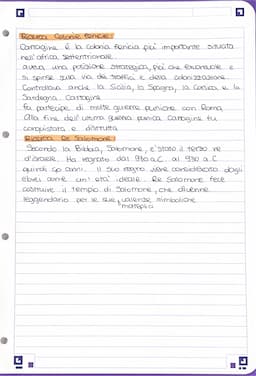 Ricerca Colonie fenicie:
Cartagine è la colonia fenicia più importante situata
nell'africa settentrionale.
aveva una posizione strategica, più che eccellente e
si spinse sulla via dei traffici e della colonizzazione.
Controllava anche la Sicilia, la Spagna, la Corsica e la
Sardegna. Cartagine
fu partecipe di molte guerre puniche con Roma,
Alla fine dell'ultima guerra punica Cartagine fu
conquistata e distrutta
Ricerca Re Salomone:
Secondo la Bibbia, Salomone, è stato il terzo re
d'Israele. Ha regnato dal 970 a.C. al 930 a.C
quindi 40 anni. Il suo regno viene considerato dagli
ebrei come un'età ideale. Re Salomone fece
costruire il tempio di Salomone, che divenne
leggendario per le sue valenze simboliche
molteplici